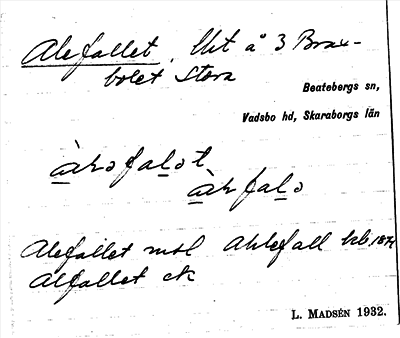 Alefallet. Utt å 3 Brax-
bolet Stora
Beatebergs sn,
Vadsbo hd, Skaraborgs län
Alefallet msl Ahlefall kb 1874
Alfallet ek
L. MADSÉN 1932.